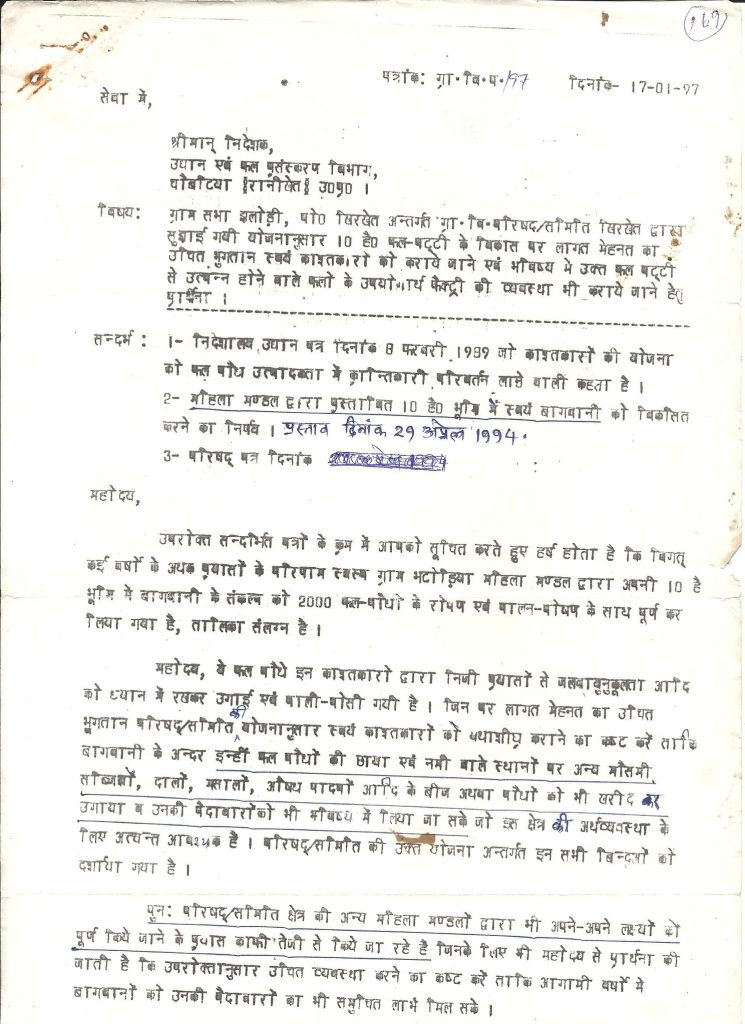 169
पत्रांक: ग्रा॰वि॰प॰/97 दिनांक- 17-01-97
सेवा में,
श्रीमान् निदेशक,
उधान एवं फल प्रसंस्करण विभाग,
चौबटिया [रानीखेत] उ0प्र0 ।
विषय: ग्राम सभा झलोड़ी, पो0 खिरखेत अन्तर्गत ग्रा॰वि॰परिषद्/समिति खिरखेत द्वारा
सुझाई गयी योजनानुसार 10 है0 फल-पट्टी के विकास पर लागत मेहनत का
उचित भुगतान स्वयं काश्तकारों को कराये जाने एवं भविष्य मे उक्त फल पट्टी
से उत्पन्न होने वाले फलो के उपयोगार्थ फैक्ट्री की व्यवस्था भी कराये जाने हेतु
प्रार्थना ।
सन्दर्भ : 1- निदेशालय उधान पत्र दिनांक 8 फरवरी 1989 जो काश्तकारों की योजना
को फल पौध उत्पादकता में क्रान्तिकारी परिवर्तन लाने वाली कहता है ।
2- महिला मण्डल द्वारा प्रस्तावित 10 है0 भूमि में स्वयं बागवानी को विकसित
करने का निर्णय । प्रस्ताव दिनांक 29 अप्रेल 1994.
3- परिषद् पत्र दिनांक
महोदय,
उपरोक्त सन्दर्भित पत्रों के क्रम में आपको सूचित करते हुए हर्ष होता है कि विगत्
कई वर्षो के अथक प्रयासों के परिणाम स्वरूप ग्राम भटोड़िया महिला मण्डल द्वारा अपनी 10 है
भूमि मे बागवानी के संकल्प को 2000 फल-पौधों के रोपण एवं पालन-पोषण के साथ पूर्ण कर
लिया गया है, तालिका संलग्न है ।
महोदय, ये फल पौधे इन काश्तकारों द्वारा निजी प्रयासों से जलवायुनुकूलता आदि
को ध्यान में रखकर उगाई एवं पाली-पोसी गयी है । जिन पर लागत मेहनत का उचित
भुगतान परिषद्/समिति की योजनानुसार स्वयं काश्तकारों को यथाशीघ्र कराने का कष्ट करें ताकि
बागवानी के अन्दर इन्हीं फल पौधों की छाया एवं नमी वाले स्थानों पर अन्य मौसमी
सब्जियों, दालों, मसालों, औषध पादपों आदि के बीज अथवा पौधों को भी खरीद कर
उगाया व उनकी पैदावारोंको भी भविष्य में लिया जा सके जो इस क्षेत्र की अर्थव्यवस्था के
लिए अत्यन्त आवश्यक है । परिषद्/समिति की उक्त योजना अन्तर्गत इन सभी बिन्दुओं को
दर्शाया गया है ।
पुन: परिषद्/समिति क्षेत्र की अन्य महिला मण्डलों द्वारा भी अपने-अपने लक्ष्यों को
पूर्ण किये जाने के प्रयास काफी तेजी से किये जा रहे है जिनके लिए भी महोदय से प्रार्थना की
जाती है कि उपरोक्तानुसार उचित व्यवस्था करने का कष्ट करें ताकि आगामी वर्षो मे
बागवानों को उनकी पैदावारों का भी समुचित लाभ मिल सके ।